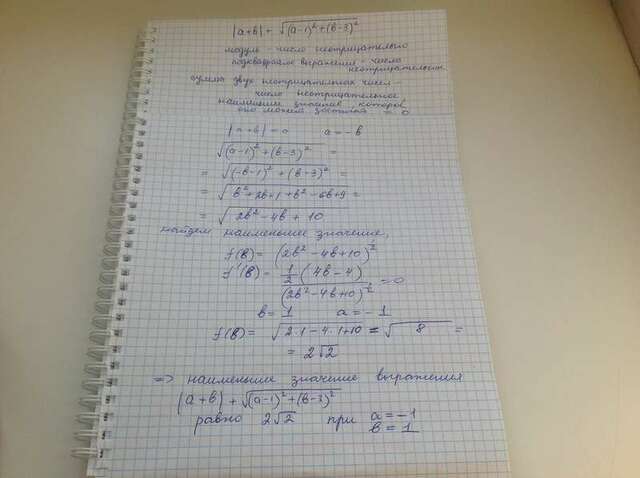 |a+b| + √((a-1)²+(b-3)²)
модуль - число неотрицательно
подквадратное выражение - число
неотрицательн.
сумма двух неотрицательных чисел
число неотрицательное
наименьшее значение, которое
оно может достигать = 0
|a+b|=0 a=-b
√((a-1)²+(b-3)²) =
= √((-b-1)²+(b-3)²) =
= √(b²+2b+1+b²-6b+9) =
= √(2b²-4b+10)
найдем наименьшее значение,
f(b) = (2b²-4b+10)^(1/2)
f'(b) = 1/2 (4b-4)/(2b²-4b+10)^(1/2) = 0
b=1 a=-1
f(b) = √(2·1-4·1+10) = √8 =
= 2√2
=> наименьшее значение выражения
|a+b| + √((a-1)²+(b-3)²)
равно 2√2 при a=-1
b=1